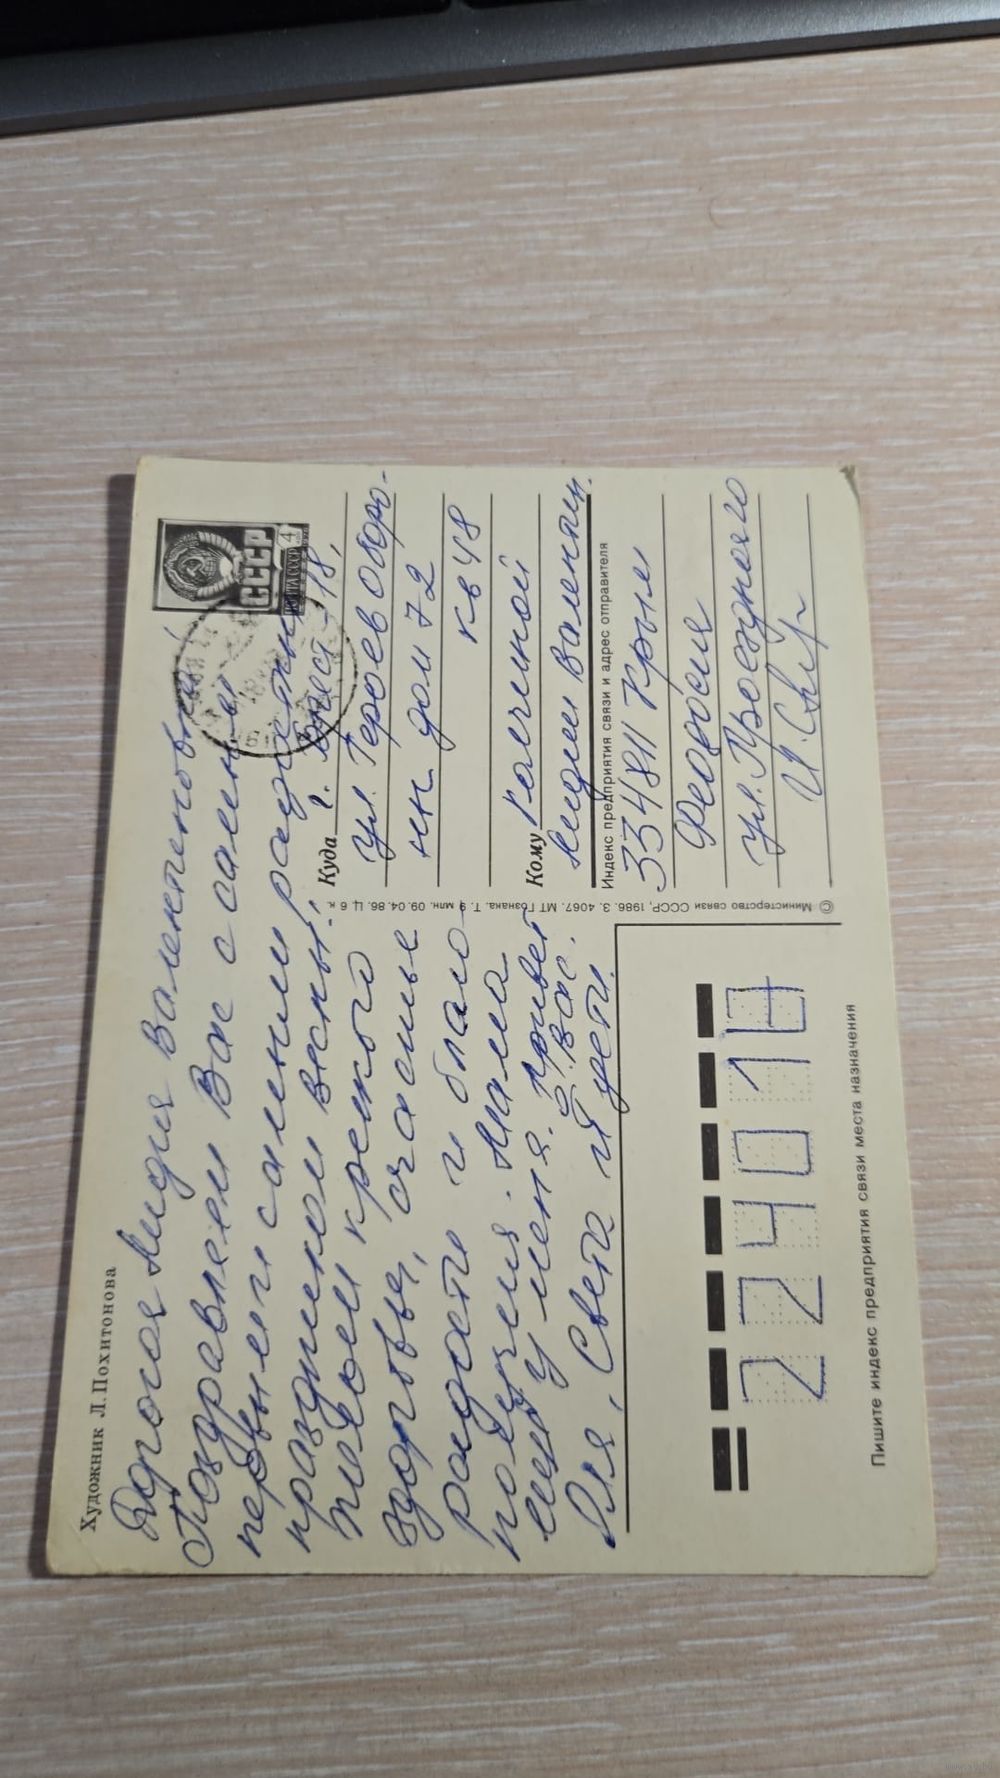 Художник Л. Похитонова
Дорогая Лидия Валентиновна!
Поздравляем Вас с самым
первым и самым радостным
праздником весны!
Желаем крепкого
здоровья, счастья
радости и благо
получия. Мама
ещё у меня. Привет
Вас.
Оля, Света и дети.
ПОЧТА СССР 4
СССР
Куда г. Брест - 18,
ул. Героев оборо-
ны дом 72
кв 48
Кому
Лидии Валентин.
Индекс предприятия связи и адрес отправителя
334811 Крым
Феодосия
ул. Проездная
© Министерство связи СССР, 1986. З. 4067. МТ Гознака. Т. 9 млн. 09.04.86. Ц. 6 к.
224018
Пишите индекс предприятия связи места назначения